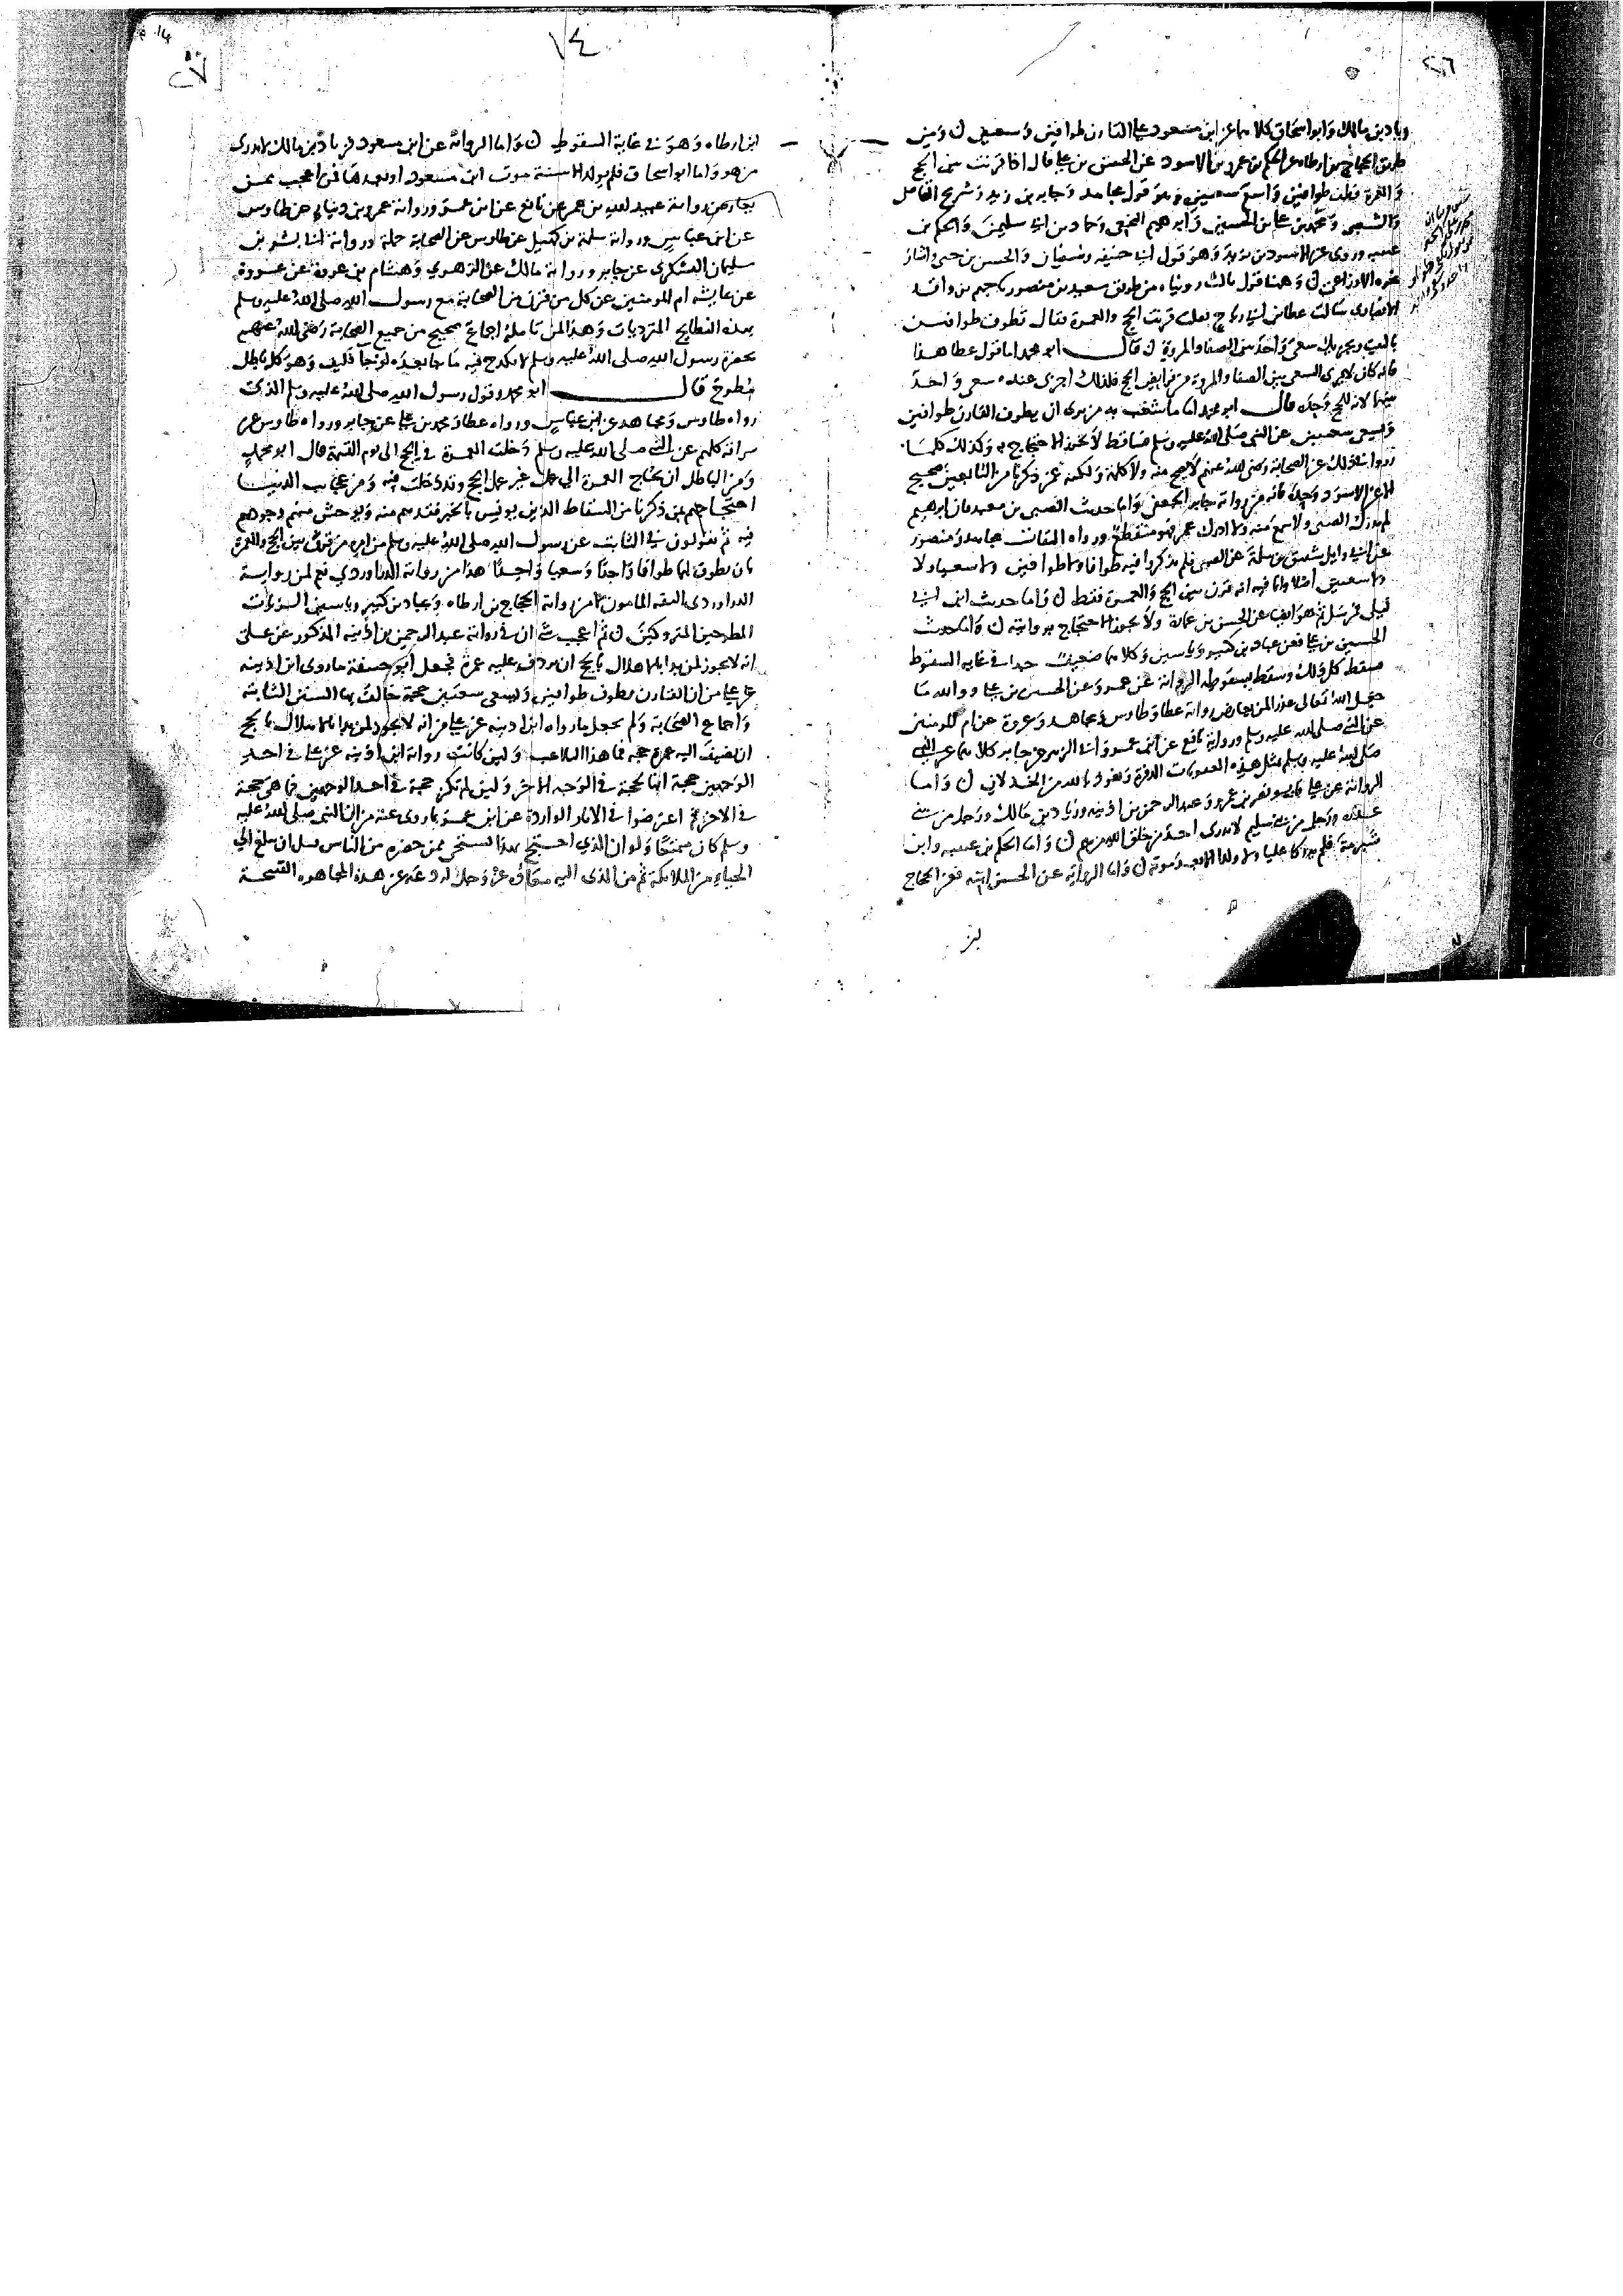 زياد بن مالك وابو اسحاق كلاهما عن ابن مسعود على القارن طوافين وسعيين ومن
طريق الحجاج بن ارطاه عن الحكم بن عمرو بن الاسود عن الحسن بن علي قال اذا قرنت بين الحج
والعمرة فطف طوافين واسع سعيين وهو قول مجاهد وجابر بن زيد وشريح القاضي
والشعبي ومحمد بن علي بن الحسين وابرهيم النخعي وحماد بن ابي سليمن والحكم بن
عتيبه وروى عن الاسود بن يزيد وهو قول ابي حنيفه وسفيان والحسن بن حي واشار
نحوه الاوزاعي وهنا قول ثالث رويناه من طريق سعيد بن منصور جهم بن واقد
الانصاري سالت عطا بن ابي رباح فقلت قرنت الحج والعمرة فقال تطوف طوافين
بالبيت ويجزيك سعي واحد بين الصفا والمروة قال ابو محمد اما قول عطا هذا
فانه كان لا يرى السعي بين الصفا والمروة من فرايض الحج فلذلك اجزى عنده سعي واحد
بينهما لانه للحج وحده قال ابو محمد اما ما شغب به من يرى ان يطوف القارن طوافين
ويسعى سعيين عن النبي صلى الله عليه وسلم فساقط لا يجوز الاحتجاج به وكذلك كلما
رووا في ذلك عن الصحابة رضي الله عنهم لا يصح منه ولا كلمة ولكنه عمن ذكرنا من التابعين صحيح
الا عن الاسود وحده فانه من رواية جابر الجعفي واما حديث الصبي بن معبد فان ابرهيم
لم يدرك الصبي ولا سمع منه ولا ادرك عمر فهو منقطع ورواه الثقات مجاهد ومنصور
عن ابي وايل شقيق بن سلمة عن الصبي فلم يذكروا فيه طوافا ولا طوافين ولا سعيا ولا
ولا سعيين اصلا وانما فيه انه قرن بين الحج والعمرة فقط واما حديث ابن ابي
ليلى فمرسل ثم هو ايضا عن الحسن بن عمارة ولا يجوز الاحتجاج بروايته واما حديث
الحسين بن علي فعن عباد بن كثير وياسين وكلاهما ضعيف جدا في غاية السقوط
فسقط كل ذلك وسقط بسقوطه الرواية عن عمر وعن الحسن بن علي ووالله ما
جعل الله تعالى عذرا لمن يعارض رواية عطا وطاوس ومجاهد وعروة عن ام المومنين
عن النبي صلى الله عليه وسلم ورواية نافع عن ابن عمر وابي الزبير عن جابر كلاهما عن النبي
صلى الله عليه وسلم بمثل هذه العفونات الدفرة ونعوذ بالله من الخذلان واما
الرواية عن علي فابو نصر بن عمرو وعبد الرحمن بن اذينه وزياد بن مالك ورجل من بني
عذره ورجل من بني سليم لا يدرى احد من خلق الله من هم واما الحكم بن عتيبه وابن
شبرمة فلم يدركا عليا ولا ولدا الا بعد موته واما الرواية عن الحسن ابنه فعن الحجاج
بن
١٤
ابن ارطاه وهو في غاية السقوط واما الرواية عن ابن مسعود فزياد بن مالك لا يدرى
من هو واما ابو اسحاق فلم يولد الا سنة موت ابن مسعود او بعدها فمن اعجب ممن
يعارض رواية عبيد الله بن عمر عن نافع عن ابن عمر ورواية عمرو بن دينار عن طاوس
عن ابن عباس ورواية سلمة بن كهيل عن طاوس عن الصحابة جملة ورواية ابي بشر بن
سليمان اليشكري عن جابر ورواية مالك عن الزهري وهشام بن عروة عن عروة
عن عايشه ام المومنين عن كل من قرن من الصحابة مع رسول الله صلى الله عليه وسلم
بهذه النطايح المترديات وهذا لمن تامله اجماع صحيح من جميع الصحابة رضي الله عنهم
بحضرة رسول الله صلى الله عليه وسلم لا يقدح فيه ما جا بعده لو جا فكيف وهو كله باطل
مطرح قال ابو محمد وقول رسول الله صلى الله عليه وسلم الذي
رواه طاوس ومجاهد عن ابن عباس ورواه عطا ومحمد بن علي عن جابر ورواه طاوس عن
سراقة كلهم عن النبي صلى الله عليه وسلم دخلت العمرة في الحج الى يوم القيمة قال ابو محمد
ومن الباطل ان يحتاج العمرة الى عمل غير عمل الحج وقد دخلت فيه ومن عجايب الدنيا
احتجاجهم بمن ذكرنا من السقاط الذين يونس بالخير فقدهم منه ويوحش منهم وجودهم
فيه ثم يقولون في الثابت عن رسول الله صلى الله عليه وسلم من امره من قرن بين الحج والعمرة
بان يطوف لهما طوافا واحدا وسعيا واحدا هذا من رواية الدراوردي نعم لمن رواية
الدراوردي الثقة المامون لا من رواية الحجاج بن ارطاه وعباد بن كثير وياسين الزيات
المطرحين المتروكين ثم اعجب شي ان في رواية عبد الرحمن بن اذينه المذكور عن علي
انه لا يجوز لمن بدا بالاهلال بالحج ان يردف عليه عمرة فجعل ابو حنيفة ما روى ابن اذينه
عن علي من ان القارن يطوف طوافين ويسعى سعيين حجة خالف بها السنن الثابتة
واجماع الصحابة ولم يجعل ما رواه ابن اذينه عن علي من انه لا يجوز لمن بدا بالاهلال بالحج
ان يضيف اليه عمرة حجه فما هذا التلاعب ولين كانت رواية ابن اذينه عن علي في احد
الوجهين حجة انها لحجة في الوجه الاخر ولين لم تكن حجة في احد الوجهين فما هي حجة
في الاخر ثم اعترضوا في الاثار الواردة عن ابن عمر بما روى عنه من ان النبي صلى الله عليه
وسلم كان متمتعا ولو ان الذي احتج بهذا يستحي ممن حضره من الناس قبل ان يبلغ الى
الحياء من الملايكة ثم من الذي اليه معاده عز وجل لردعه عن هذه المجاهره القبيحة